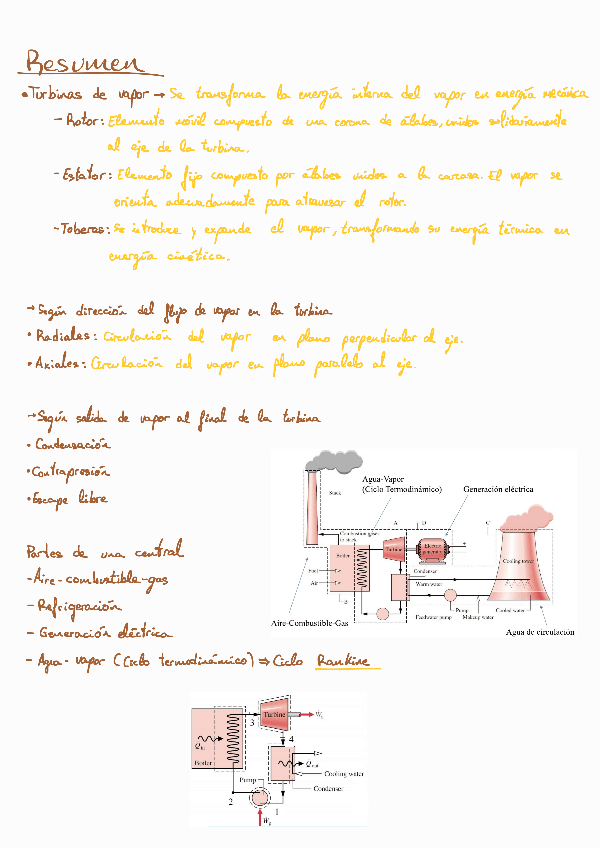 Resumen
• Turbinas de vapor → Se transforma la energía interna del vapor en energía mecánica
- Rotor: Elemento móvil compuesto de una corona de álabes, unidos solidariamente
al eje de la turbina.
- Estator: Elemento fijo compuesto por álabes unidos a la carcasa. El vapor se
orienta adecuadamente para atravesar el rotor.
- Toberas: Se introduce y expande el vapor, transformando su energía térmica en
energía cinética.
→ Según dirección del flujo de vapor en la turbina
• Radiales: Circulación del vapor en plano perpendicular al eje.
• Axiales: Circulación del vapor en plano paralelo al eje.
→ Según salida de vapor al final de la turbina
• Condensación
• Contrapresión
• Escape libre
Partes de una central
- Aire-combustible-gas
- Refrigeración
- Generación eléctrica
- Agua-vapor (Ciclo termodinámico) ⇒ Ciclo Rankine
Agua-Vapor
(Ciclo Termodinámico)
Generación eléctrica
Stack
A
D
C
Combustion gases
to stack
Boiler
Turbine
Electric
generator
Cooling tower
Fuel
Air
Condenser
Warm water
B
Feedwater pump
Pump
Makeup water
Cooled water
Aire-Combustible-Gas
Agua de circulación
Turbine
Ẇt
3
4
Q̇in
Boiler
Q̇out
Cooling water
Pump
Condenser
2
1
Ẇp